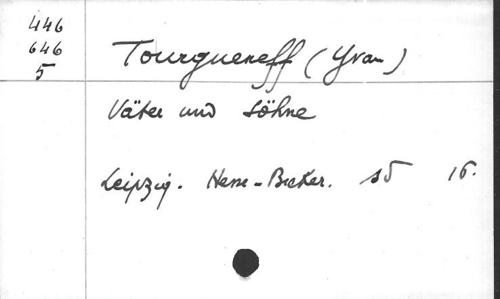 446
646
5
Tourgueneff (Yvan)
Väter und Söhne
Leipzig. Hesse-Becker. sd 16.